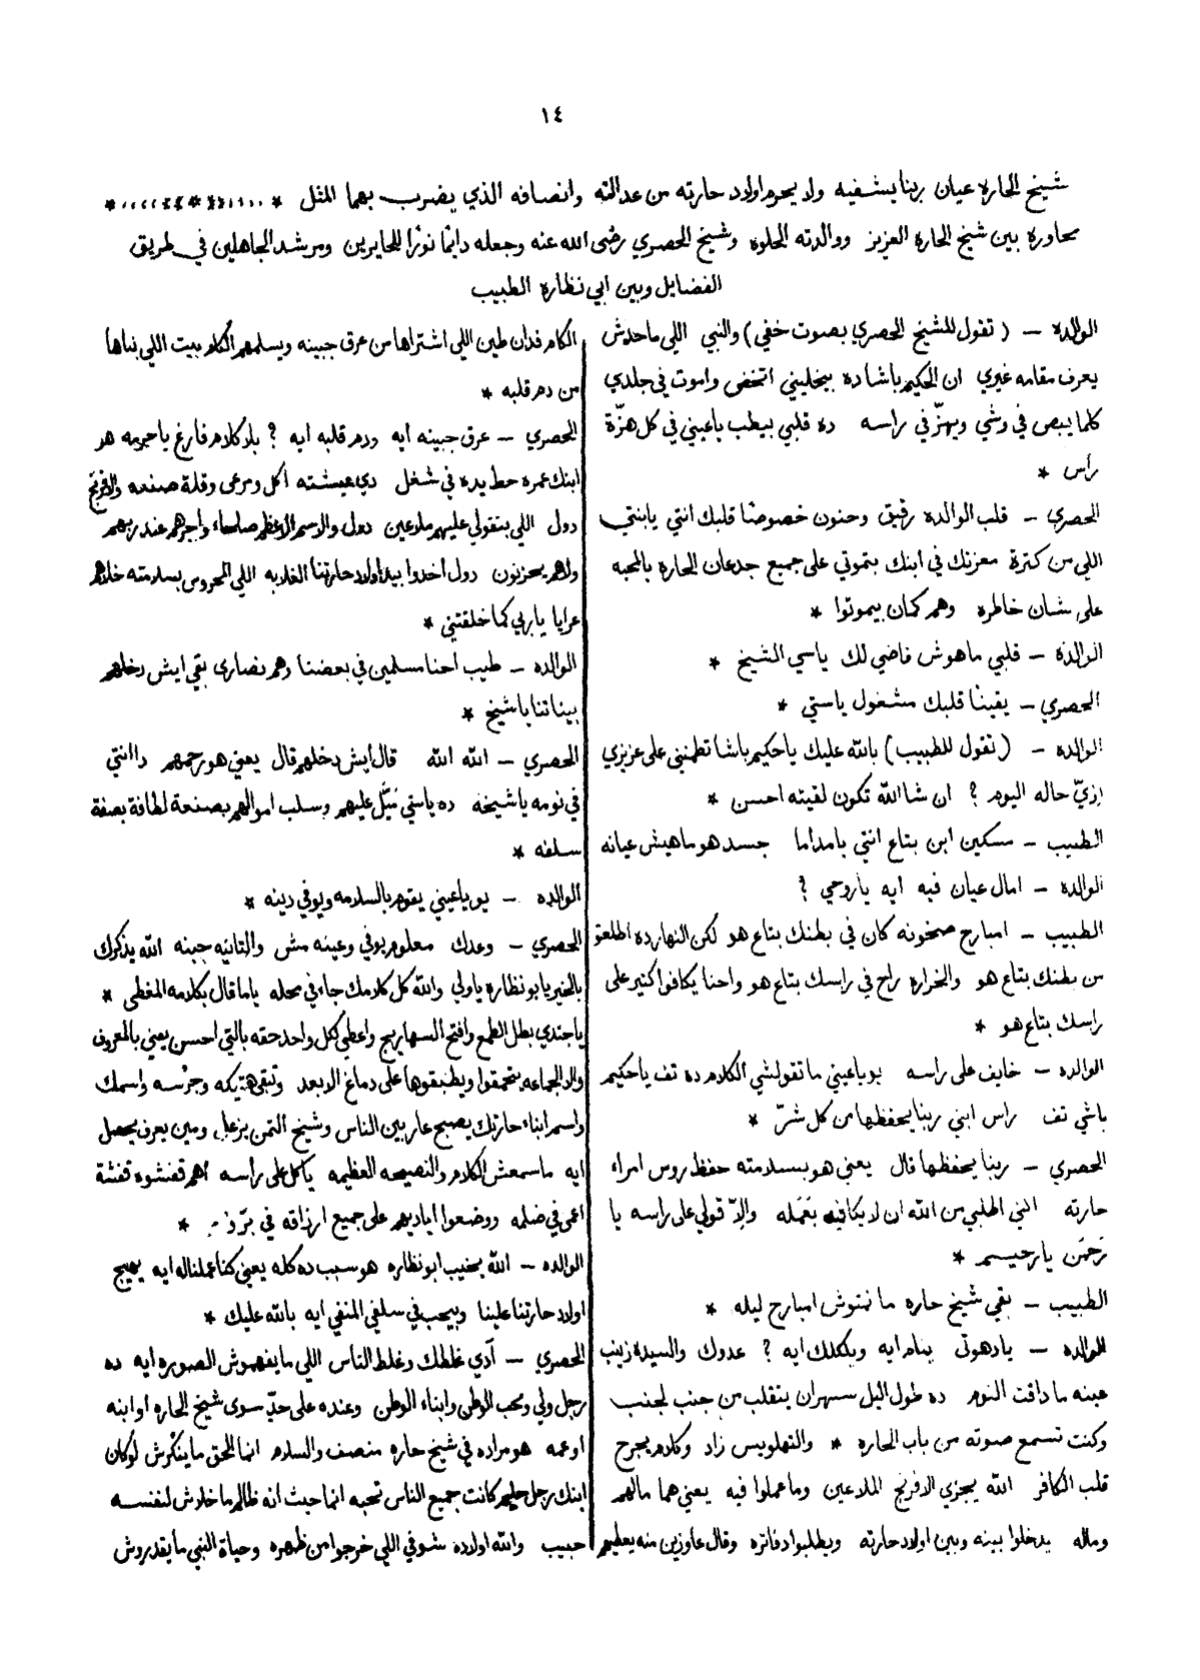 ١٤
شيخ الحاره عيان ربنا يشفيه ولا يحرم اولاد حارته من عدالته وانصافه الذي يضرب بهما المثل *
محاورة بين شيخ الحارة العزيز ووالدته الحلوه وشيخ الحصري رضى الله عنه وجعله دايمًا نورًا للحايرين ومرشد الجاهلين في طريق
الفضايل وبين ابي نظاره الطبيب
الوالدة — ( تقول للشيخ الحصري بصوت خفي ) والنبي اللي ماحدش
يعرف مقامه غيري ان الحكيم باشا ده بيخليني اتخض واموت في جلدي
كلما يبص في وشي ويهزّ في راسه ده قلبي بيطب ياعيني في كل هزّة
رأس *
الحصري — قلب الوالده رقيق وحنون خصوصًا قلبك انتي يابنتي
اللي من كترة معزتك في ابنك بتموتي على جميع جدعان الحاره بالمحبه
على شان خاطره وهم كمان بيموتوا *
الوالدة — قلبي ماهوش فاضي لك ياسي الشيخ *
الحصري — يقينًا قلبك مشغول ياستي *
الوالده — ( تقول للطبيب ) بالله عليك ياحكيم باشا تطمنني على عزيزي
ازيّ حاله اليوم ؟ ان شا الله تكون لقيته احسن *
الطبيب — مسكين ابن بتاع انتي يامدأما جسد هو ماهيش عيانه
الوالدة — امال عيان فيه ايه ياروحي ؟
الطبيب — امبارح صخونه كان في بطنك بتاع هو لكن النهارده اطلعتو
من بطنك بتاع هو والخراره راح في راسك بتاع هو واحنا يكافوا كتير على
راسك بتاع هو *
الوالده — خايف على راسه يوياعيني ماتقولشي الكلام ده تف ياحكيم
باشي تف راس ابني ربنا يحفظها من كل شرّ *
الحصري — ربنا يحفظها قال يعني هو بسلامته حفظ روس امراء
حارته انتي اطلبي من الله ان لا يكافيه بعَمَله والاّ قولي على راسه يا
رَحمَن يارحيم *
الطبيب — بقي شيخ حاره ما نمتوش امبارح ليله *
الوالده — يادهوتي ينام ايه وبلكلك ايه ؟ عدوك والسيدة زينب
عينه ما داقت النوم ده طول الليل سهران يتقلب من جنب لجنب
وكنت تسمع صوته من باب الحاره * والتهلويس زاد وكلام يجرح
قلب الكافر الله يجزي الافرنج الملاعين وما عملوا فيه يعني هما مالهم
وماله يدخلوا بينه وبين اولاد حارته ويطلبوا دفاتره وقال عاوزين منه يعطيهم
الكام فدان طين اللي اشتراها من عرق جبينه ويسلمهم الكام بيت اللي بناها
من دم قلبه *
الحصري — عرق جبينه ايه ودم قلبه ايه ؟ بلا كلام فارغ ياحرمه هو
ابنك عمره حط يده في شغل دي عيشته اكل ومرعى وقلة صنعه والافرنج
دول اللي بتقولي عليهم ملاعين دول والاسم الاعظم صلحاء واجرهم عند ربهم
ولاهم يحزنون دول اخدوا بيد اولاد حارتنا الغلابه اللي المحروس بسلامته خلاهم
عرايا ياربي كما خلقتني *
الوالده — طيب احنا مسلمين في بعضنا وهم نصارى بقي ايش دخلهم
بيناتنا ياشيخ *
الحصري — الله الله قال ايش دخلهم قال يعني هو رحمهم دا انتي
في نومه ياشيخه ده ياستي نيّل عليهم وسلب اموالهم بصنعة لطافة بصفة
سلفه *
الوالده — يوياعيني يقوم بالسلامه ويوفي دينه *
الحصري — وعدك معلوم يوفي وعينه مش والتانيه جبنه الله يذكرك
بالخير يابو نظاره ياولي والله كل كلامك جاء في محله ياما قال بكلامه المغطى *
ياجندي بطل الطمع وافتح السهاريج واعطي لكل واحد حقه بالتي احسن يعني بالمعروف
والا الجماعه يتحمقوا ويطبقوها على دماغ الابعد وتبقى هتيكه وجرسه واسمك
واسم ابناء حارتك يصبح عار بين الناس وشيخ التمن يزعل ومين يعرف يحصل
ايه ماسمعش الكلام والنصيحه العظيمه ياكل على رأسه اهم قفشوه قفشة
اعمى في ضلمه ووضعوا اياديهم على جميع ارزاقه في برّ *
الوالده — الله يخيب ابو نظاره هو سبب ده كله يعني كنا عملنا له ايه يهيج
اولاد حارتنا علينا ويحب في سلفي المنفي ايه بالله عليك *
الحصري — آدي غلطك وغلط الناس اللي ما يفهموش الصوره ايه ده
رجل ولي ومحب الوطن وابناء الوطن وعنده على حدّ سوى شيخ الحاره او ابنه
او عمه هو مراده في شيخ حاره منصف والسلام انما الحق ما ينكرش لو كان
ابنك رجل حليم كانت جميع الناس تحبه انما حيث انه ظالم ما خلاوش لنفسه
حبيب والله اولاده شوفي اللي خرجوا من ظهره وحياة النبي ما يقدروش